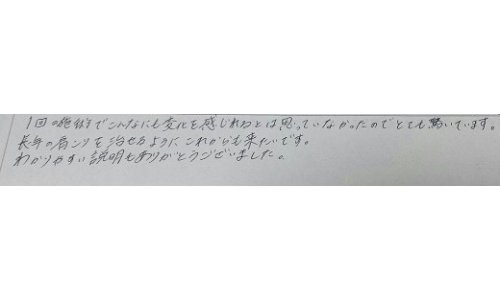 1回の施術でこんなにも変化を感じれるとは思っていなかったのでとても驚いています。
長年の肩こりを治せるようにこれからも来たいです。
わかりやすい説明もありがとうございました。